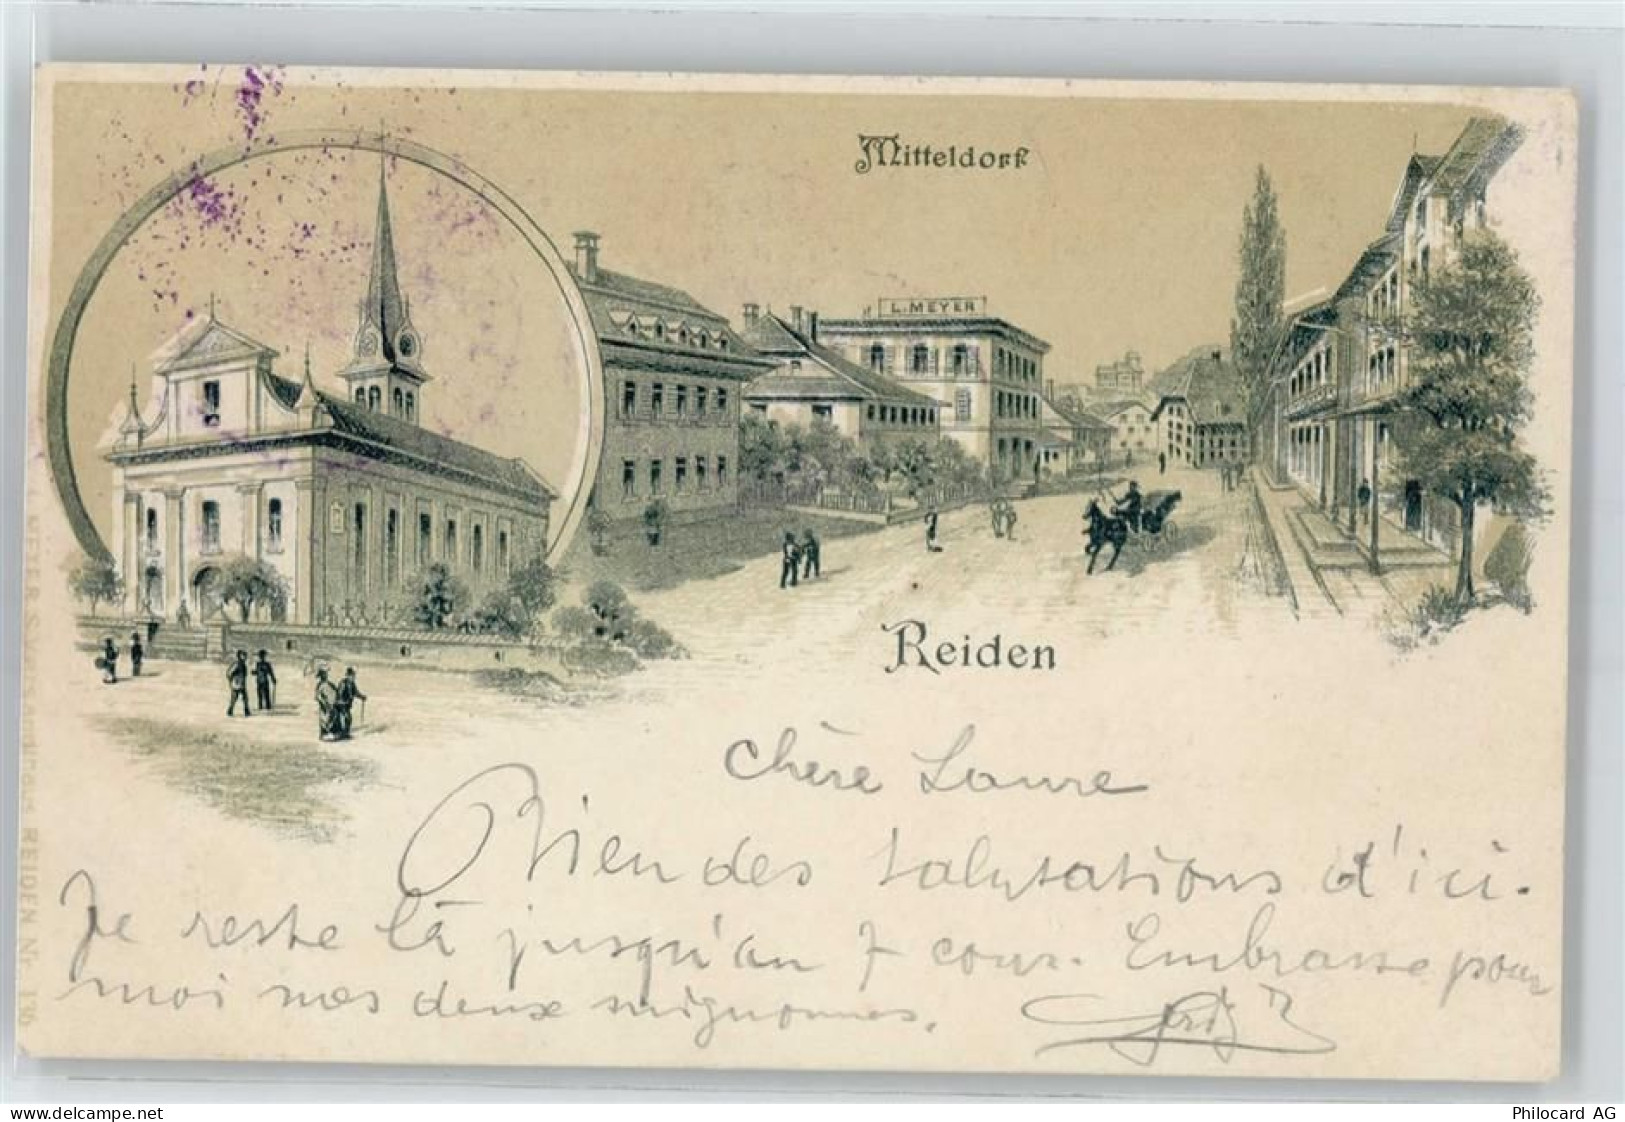 Mitteldorf
L. MEYER
Reiden
chère Laure
Bien des salutations d'ici.
Je reste là jusqu'au 7 cour. Embrasse pour
moi mes deux mignonnes.
REIDEN Nr. 126
www.delcampe.net
Philocard AG